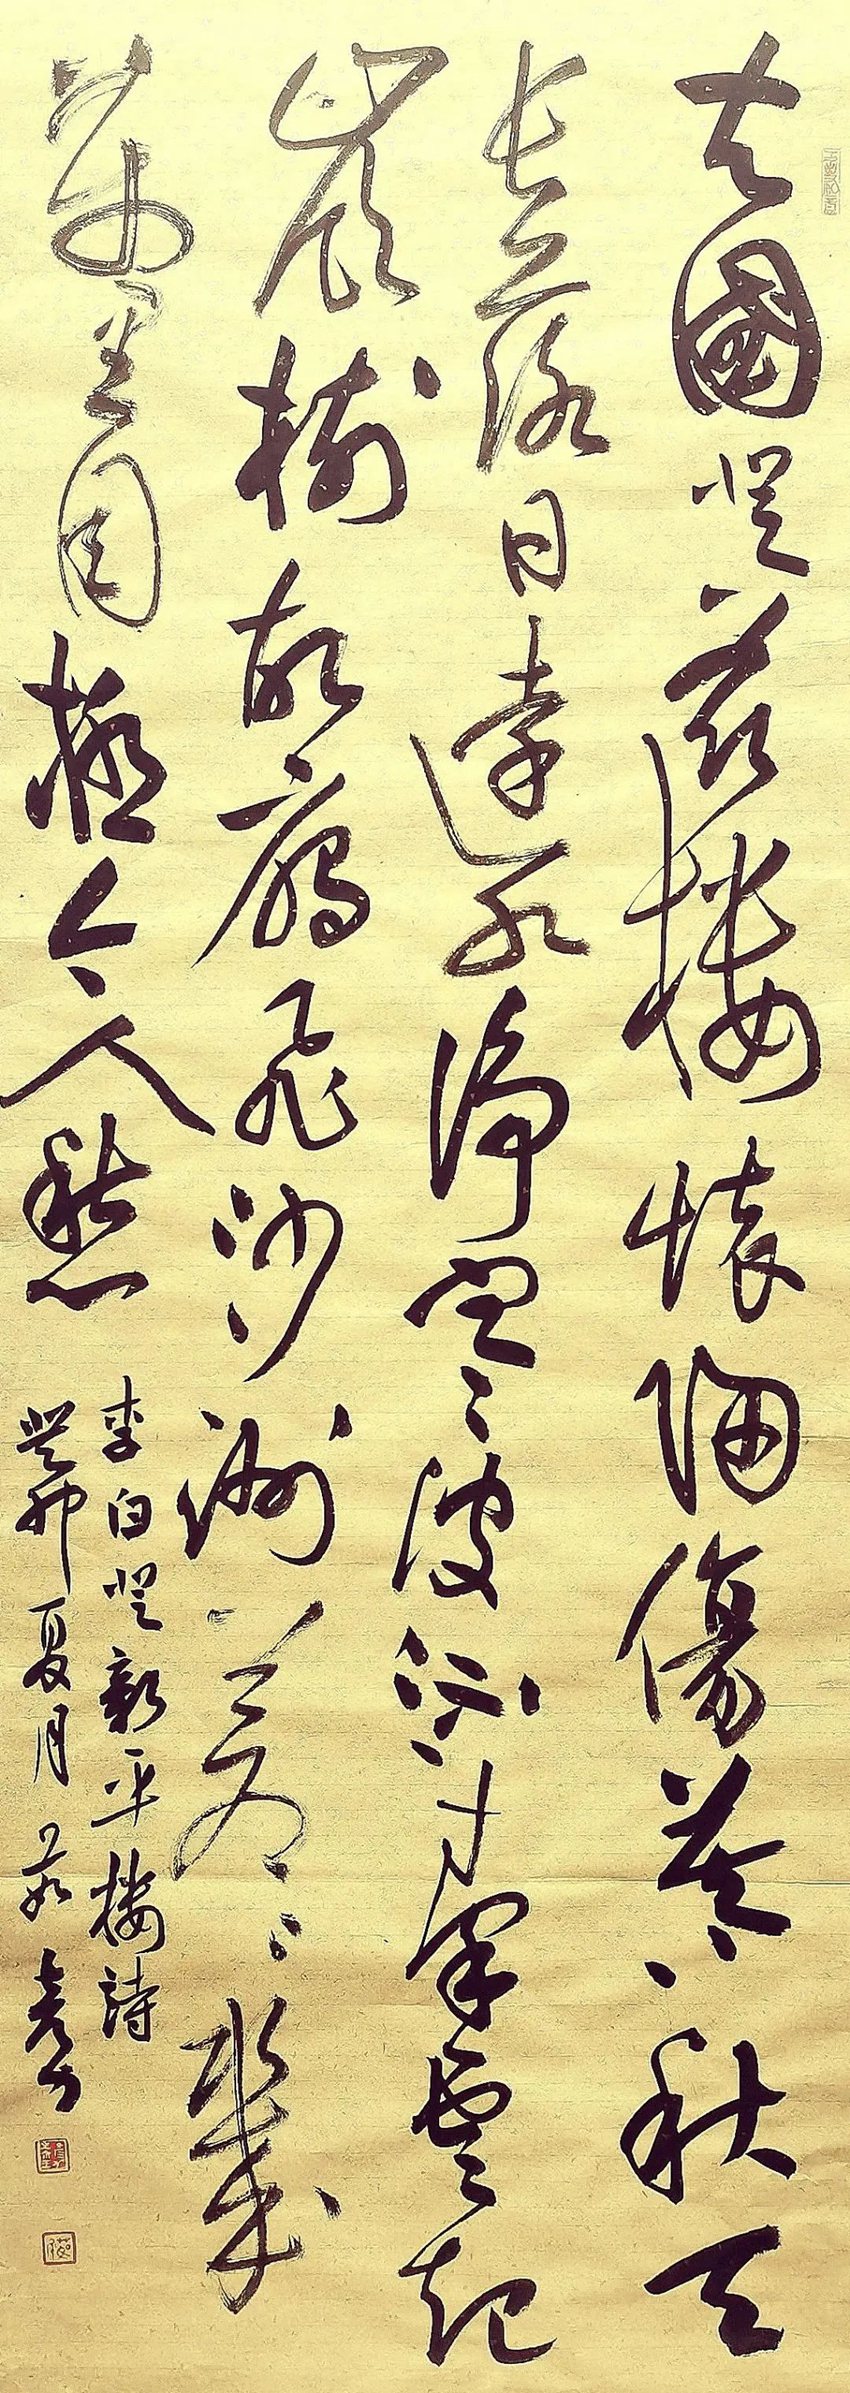 去國登茲樓懷歸傷暮秋天
長落日遠水淨寒波流秦雲起
嶺樹胡雁飛沙洲蒼〻幾
萬里目極令人愁
李白登新平樓詩
癸卯夏月